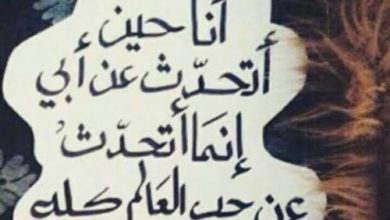 أنا حين
أتحدّث عن أبي
إنمَا أتحدّثْ
عن حب العَالم كله